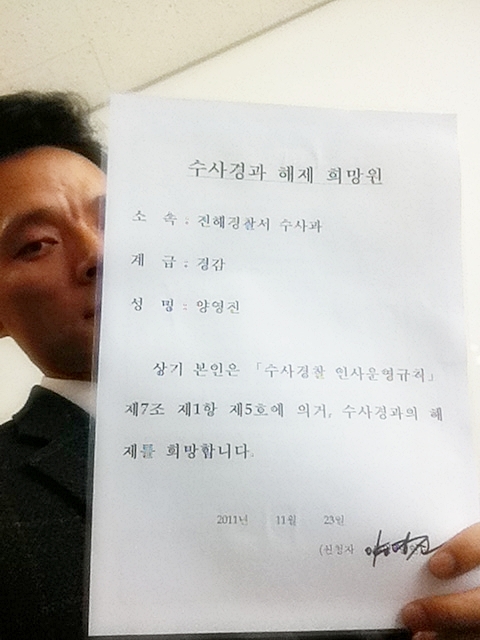 수사경과 해제 희망원
소 속 : 진해경찰서 수사과
계 급 : 경감
성 명 : 양영진
상기 본인은 「수사경찰 인사운영규칙」
제7조 제1항 제5호에 의거, 수사경과의 해
제를 희망합니다.
2011년 11월 23일
(신청자